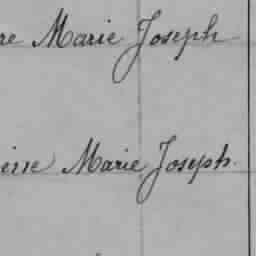 re Marie Joseph
erre Marie Joseph